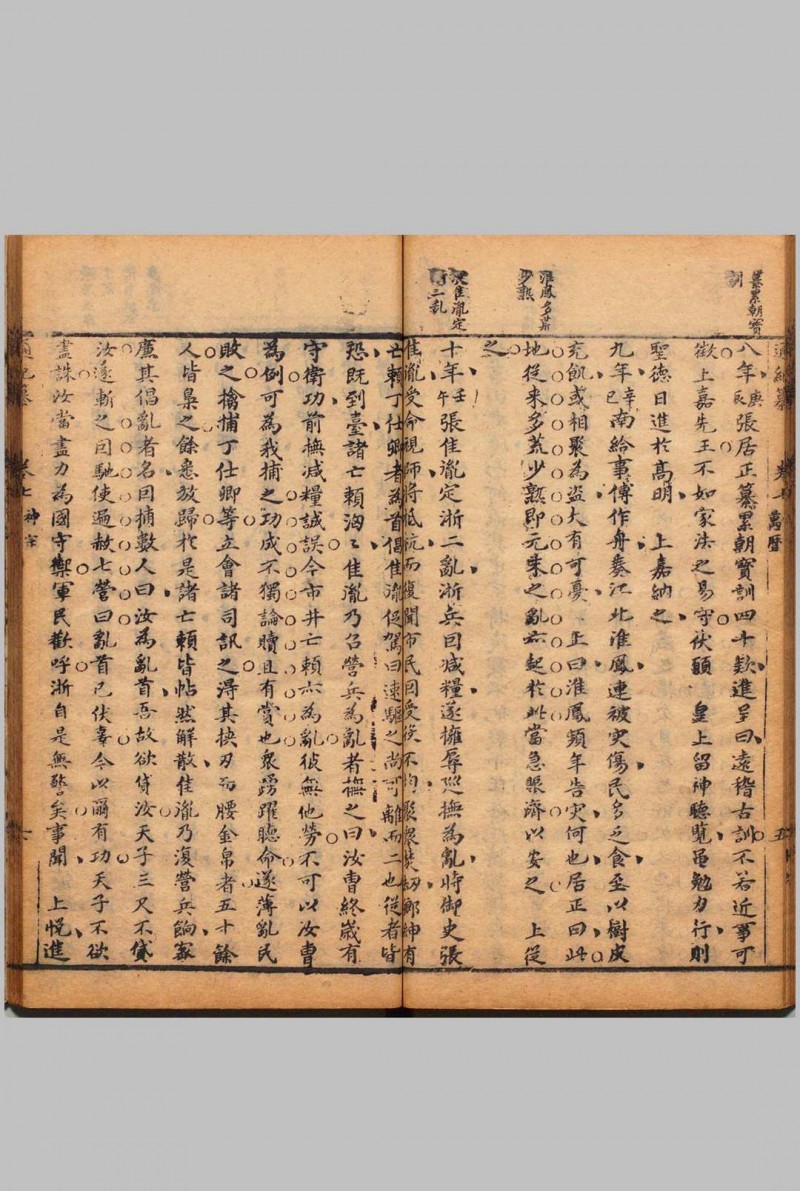 纂累朝寶
訓
萬曆
八年庚辰張居正纂累朝寶訓四十欵進呈曰遠稽古訓不若近事可
徵上嘉先王不如家法之易守伏願　皇上留神聽覽黽勉力行則
聖德日進於高明　上嘉納之
九年辛巳南給事傅作舟奏江北淮鳳連被灾傷民多乏食至以樹皮
充飢或相聚為盗大有可憂　上曰淮鳳頻年告灾何也居正曰此
地從来多荒少熟即元末之亂亦起於此當急賑濟以安之　上從
之
淮鳳多荒
少熟
十年壬午張佳胤定浙二亂浙兵因减糧遂擁辱廵撫為亂時御史張
張佳胤定
二乱
佳胤受命視師将抵杭而復聞市民因受役不均聚衆焚刼鄉紳有
亡賴丁仕卿者為首倡佳胤促駕曰速驅之尚可離而二也從者皆
恐既到臺諸亡賴洶洶佳胤乃召營兵為亂者撫之曰汝曹終歳有
守衛功前撫减糧誠誤今市井亡賴亦為亂彼無他勞不可以汝曹
為例可為我捕之功成不獨論贖且有賞也衆踴躍聽命遂薄亂民
敗之擒捕丁仕卿等立會諸司訊之得其挟刃而腰金帛者五十餘
人皆梟之餘悉放歸於是諸亡賴皆帖然解散佳胤乃復營兵餉家
廉其倡亂者名因捕數人曰汝為亂首吾故欲貸汝天子三尺不貸
汝遂斬之因馳使遍赦七營曰亂首已伏辜今以爾有功天子不欲
盡誅汝當盡力為國守禦軍民歡呼浙自是無警矣事聞　上悦進
卷七　神宗